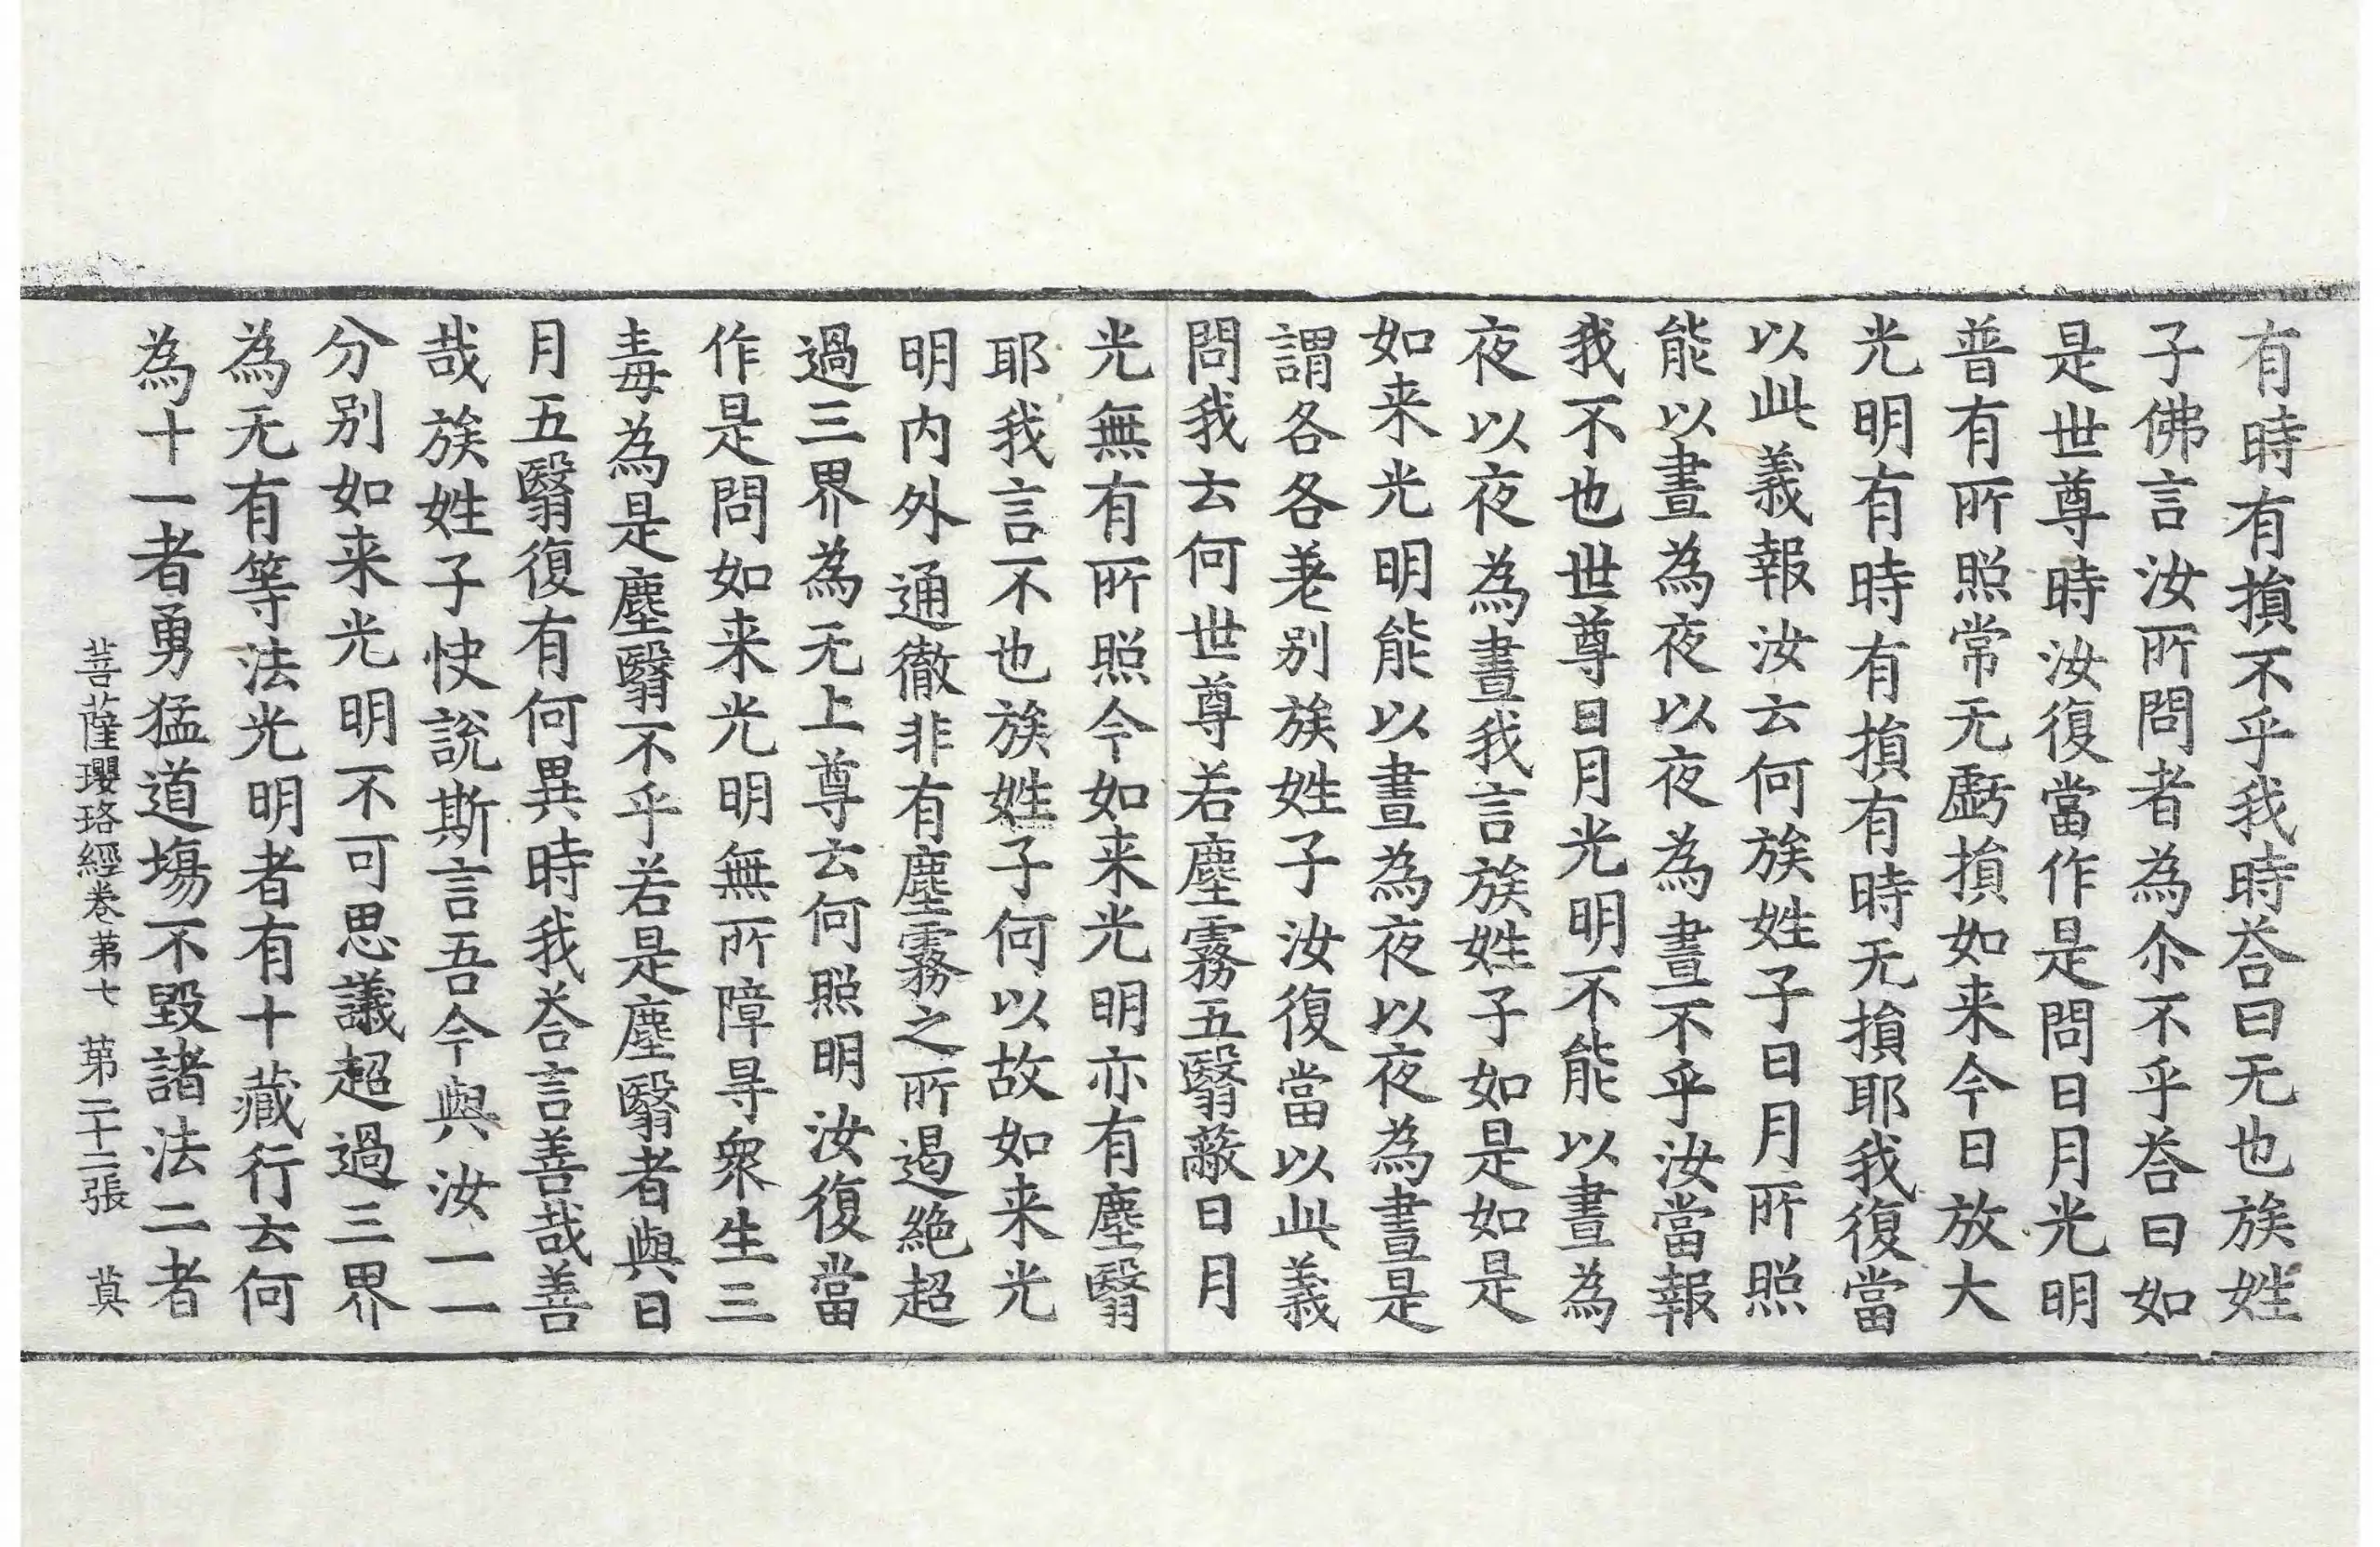 有時有損不乎我時荅曰无也族姓
子佛言汝所問者為尒不乎荅曰如
是世尊時汝復當作是問日月光明
普有所照常无虧損如来今日放大
光明有時有損有時无損耶我復當
以此義報汝云何族姓子日月所照
能以晝為夜以夜為晝不乎汝當報
我不也世尊日月光明不能以晝為
夜以夜為晝我言族姓子如是如是
如来光明能以晝為夜以夜為晝是
謂各各差别族姓子汝復當以此義
問我云何世尊若塵霧五翳蔽日月
光無有所照今如来光明亦有塵翳
耶我言不也族姓子何以故如来光
明内外通徹非有塵霧之所遏絶超
過三界為无上尊云何照明汝復當
作是問如来光明無所障㝵衆生三
毒為是塵翳不乎若是塵翳者與日
月五翳復有何異時我荅言善哉善
哉族姓子快說斯言吾今與汝一一
分别如来光明不可思議超過三界
為无有等法光明者有十藏行云何
為十一者勇猛道塲不毀諸法二者
菩薩瓔珞經卷第七　第二十二張　莫